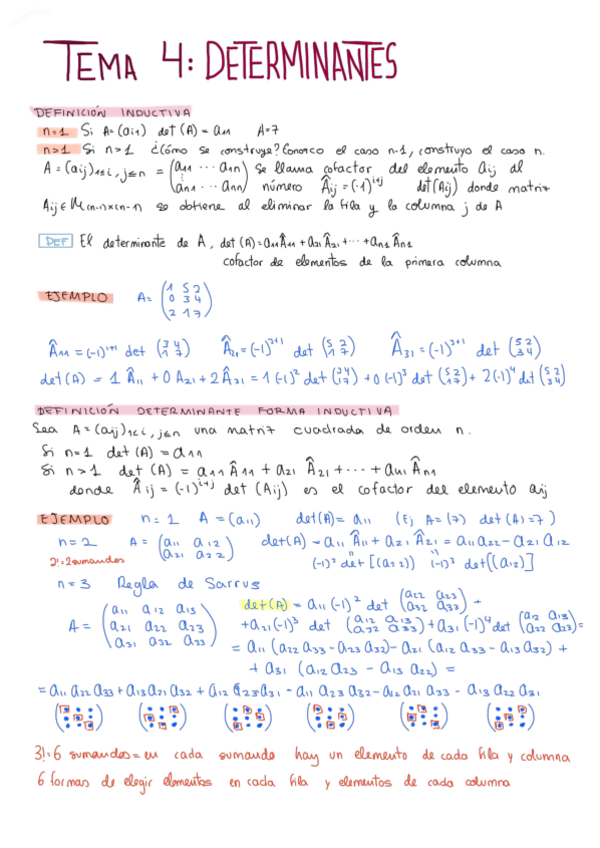 TEMA 4: DETERMINANTES
DEFINICIÓN INDUCTIVA
n=1 Si A=(a₁₁) det (A) = a₁₁ A=7
n>1 Si n>1 ¿Cómo se construye? Conozco el caso n-1, construyo el caso n.
A = (aij)1≤i,j≤n = (a11 ... a1n) se llama cofactor del elemento aij al
(an1 ... ann) número Âij = (-1)^i+j det(Aij) donde matriz
Aij ∈ M(n-1)×(n-1) se obtiene al eliminar la fila y la columna j de A
DEF El determinante de A, det (A) = a11Â11 + a21Â21 + ... + an1Ân1
cofactor de elementos de la primera columna
EJEMPLO A = (1 5 2
0 3 4
2 1 7)
Â11 = (-1)^1+1 det (3 4 / 1 7) Â21 = (-1)^2+1 det (5 2 / 1 7) Â31 = (-1)^3+1 det (5 2 / 3 4)
det(A) = 1 Â11 + 0 A21 + 2 Â31 = 1 (-1)^2 det (3 4 / 1 7) + 0 (-1)^3 det (5 2 / 1 7) + 2 (-1)^4 det (5 2 / 3 4)
DEFINICIÓN DETERMINANTE FORMA INDUCTIVA
Sea A = (aij)1≤i,j≤n una matriz cuadrada de orden n.
Si n=1 det (A) = a11
Si n>1 det (A) = a11 Â11 + a21 Â21 + ... + an1 Ân1
donde Âij = (-1)^i+j det (Aij) es el cofactor del elemento aij
EJEMPLO n=1 A = (a11) det(A) = a11 (Ej A=(7) det (A)=7)
n=2 A = (a11 a12 / a21 a22) det(A) = a11 Â11 + a21 Â21 = a11 a22 - a21 a12
2!=2 sumandos (-1)^2 det[(a22)] (-1)^3 det[(a12)]
n=3 Regla de Sarrus
A = (a11 a12 a13 / a21 a22 a23 / a31 a32 a33) det(A) = a11 (-1)^2 det (a22 a23 / a32 a33) +
+ a21 (-1)^3 det (a12 a13 / a32 a33) + a31 (-1)^4 det (a12 a13 / a22 a23) =
= a11 (a22 a33 - a23 a32) - a21 (a12 a33 - a13 a32) +
+ a31 (a12 a23 - a13 a22) =
= a11 a22 a33 + a13 a21 a32 + a12 a23 a31 - a11 a23 a32 - a12 a21 a33 - a13 a22 a31
3!=6 sumandos = en cada sumando hay un elemento de cada fila y columna
6 formas de elegir elementos en cada fila y elementos de cada columna